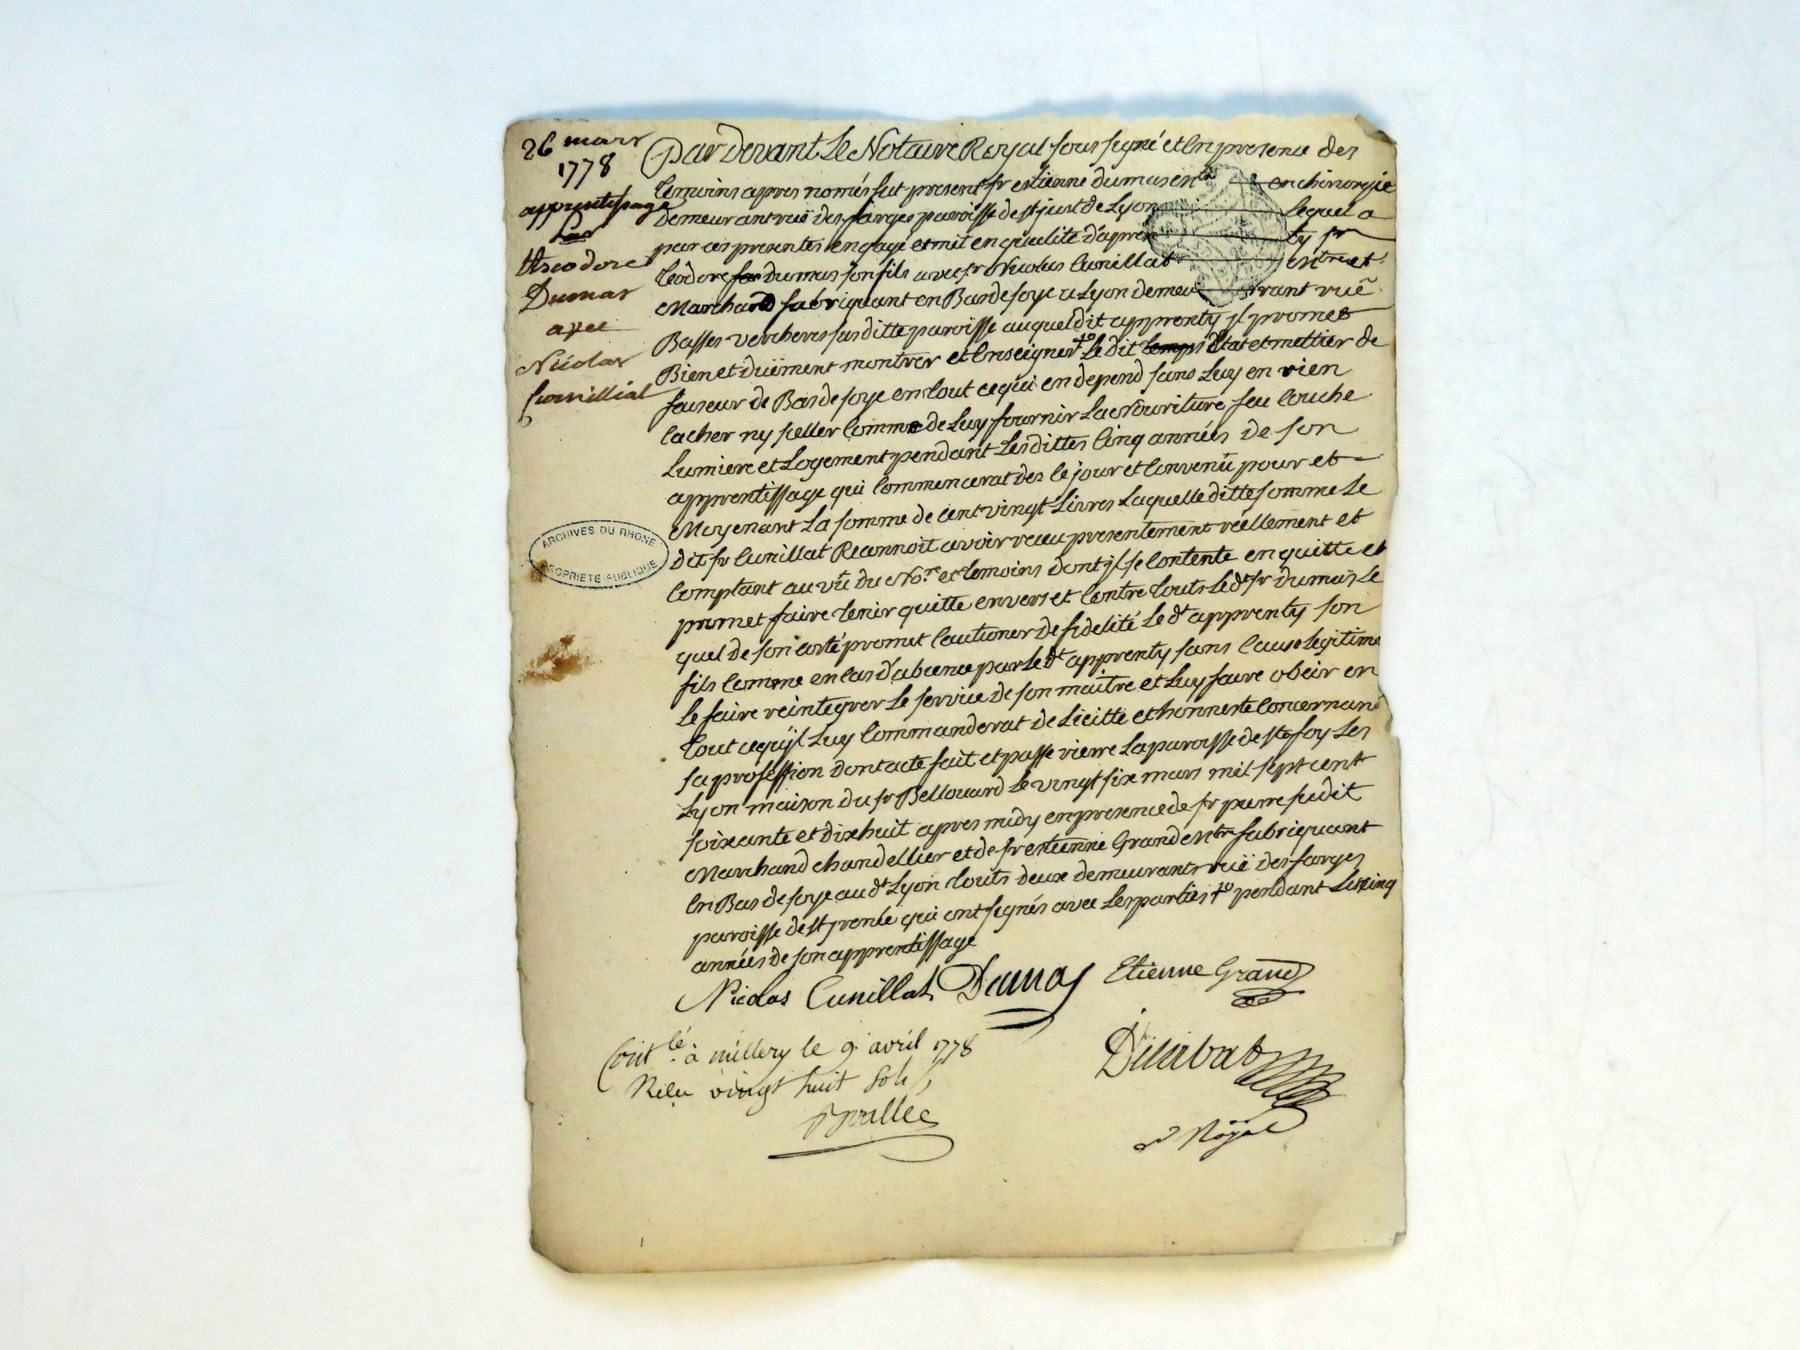 26 mars
1778
apprentissage
Par
théodore
Dumas
avec
Nicolas
Cunilliat
ARCHIVES DU RHONE
PROPRIETE PUBLIQUE
Par Devant Le Notaire Royal sous signé et En presence des
temoins apres només fut present sr estienne dumas en chirurgie
demeurant ruë des farges paroisse de st just de Lyon Lequel a
par ces presentes engagé et mit en qualite d'apprenty sr
teodore Dumas son fils avec sr Nicolas Cunillat mtre et
Marchand fabriquant en Bas de soye a Lyon demeurant ruë
Basses vercheres sus ditte paroisse auquel dit apprenty jl promet
Bien et duëment montrer et Enseigner Le dit temps Etat et mettier de
faiseur de Bas de soye en tout ce qui en depend sans Luy en rien
cacher ny seller Comme de Luy fournir La Nouriture feu Couche
Lumiere et Logement pendant Les dittes Cinq années de son
apprentissage qui Commencerat des ce jour et Convenü pour et
Moyenant La somme de cent vingt Livres Laquelle ditte somme Le
dit sr Cunillat Reconnoit avoir receu presentement réellement et
Comptant au vû du Nore. et temoins dont jl se Contente en quitte et
promet faire tenir quitte envers et Contre touts Le dt sr dumas Le
quel de son coté promet Cautioner de fidelité Le dt apprenty son
fils Comme en Cas d'absence par Le dt apprenty sans Cause Legitime
Le faire reintegrer Le service de son maitre et Luy faire obeir en
tout ce qu'jl Luy Commanderat de Licitte et honneste Concernant
sa profession dont acte fait et passé rierre La paroisse de ste foy Les
Lyon maison du sr Bellouard Le vingt six mars mil sept cent
soixante et dix huit apres midy en presence de sr pierre
Marchand chandellier et de sr estienne Grand mtre fabriquant
En Bas de soye au dt Lyon touts deux demeurants ruë des farges
paroisse de st jrenée qui ont signés avec Les parties pendant Les cinq
années de son apprentissage
Nicolas Cunillat Dumas Etienne Grand
Contlé. à millery le 9. avril 1778
Reçu vingt huit sols
nre Royal